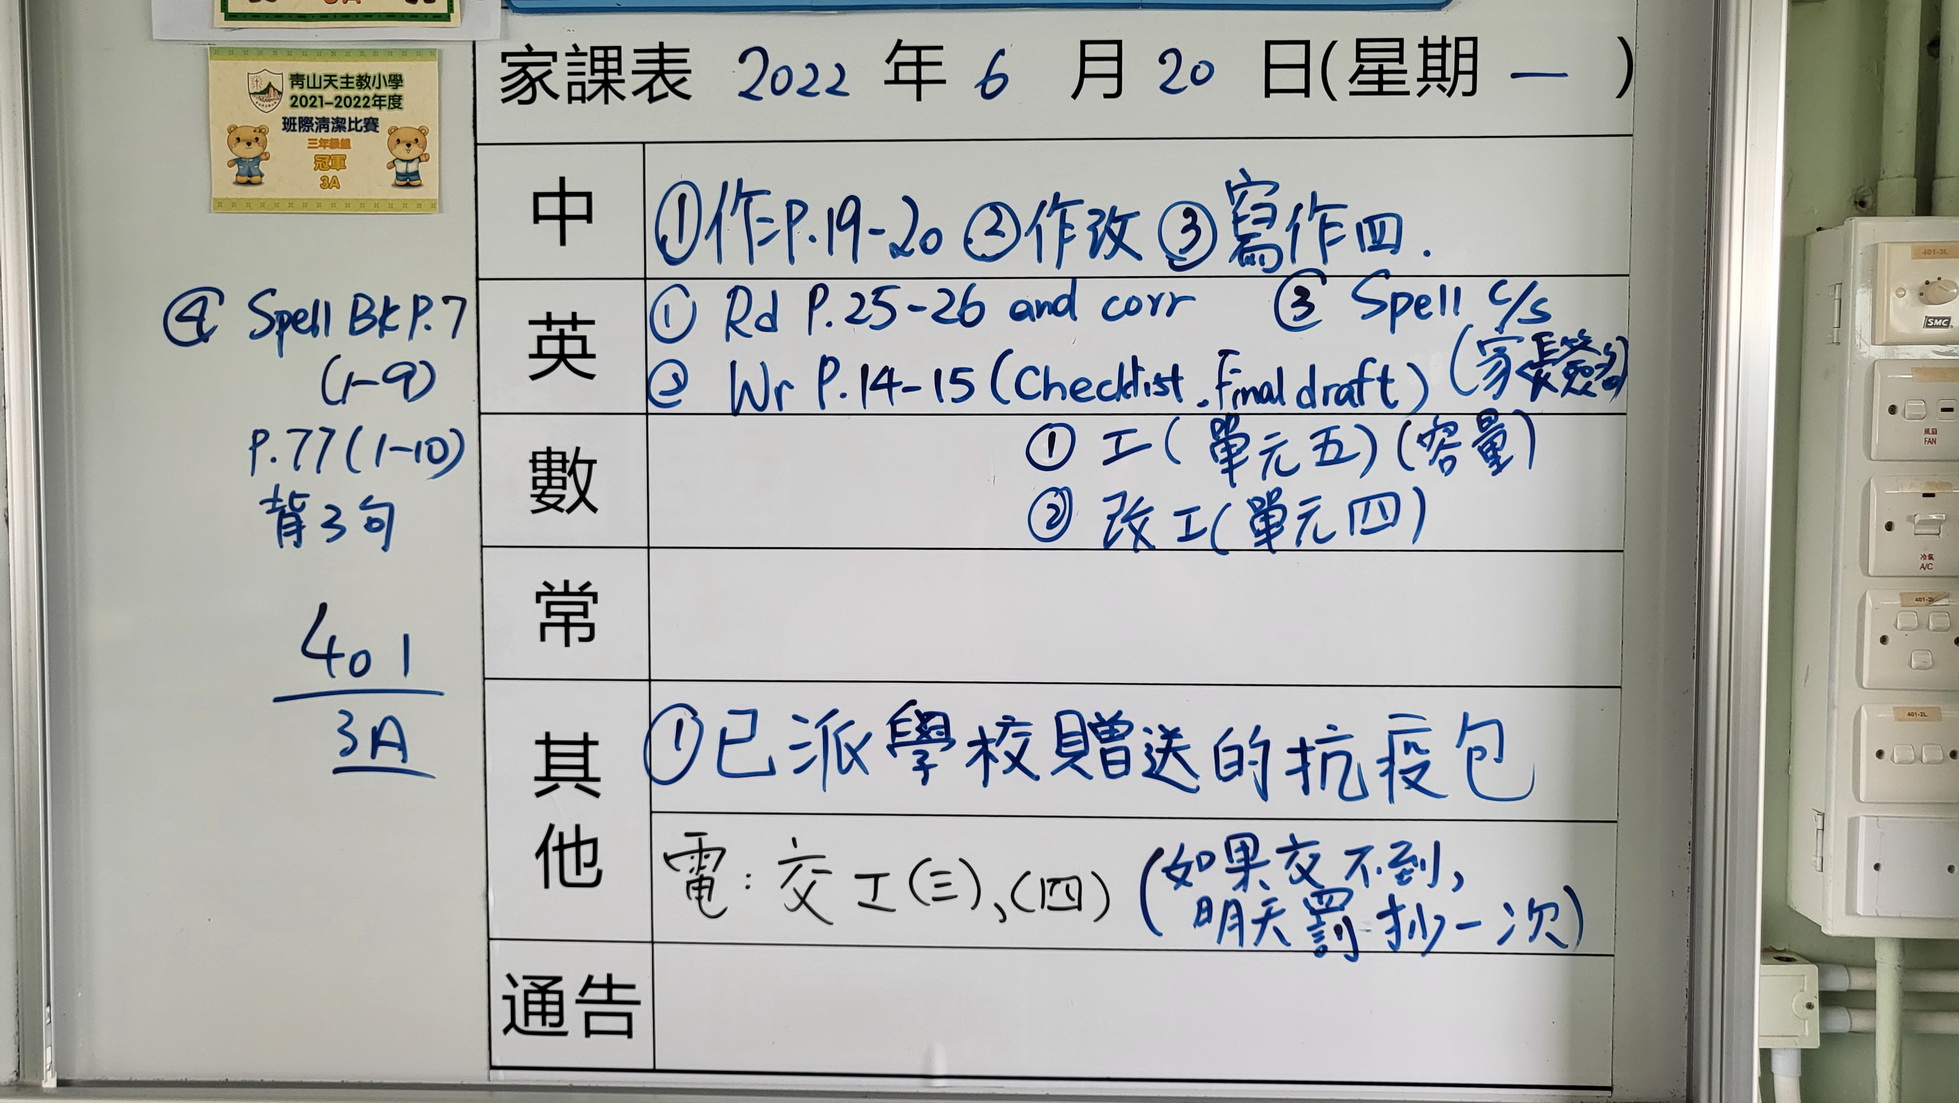 3A
青山天主教小學
2021-2022年度
班際清潔比賽
三年級組
冠軍
3A
家課表 2022 年 6 月 20 日(星期 一 )
中
①作P.19-20 ②作改 ③寫作四.
英
① Rd P.25-26 and corr ③ Spell c/s
② Wr P.14-15 (Checklist, Final draft) (家長簽名)
④ Spell Bk P.7
(1-9)
P.77 (1-10)
背3句
數
① 工(單元五)(容量)
② 改工(單元四)
常
401
3A
其他
①已派學校贈送的抗疫包
電:交工(三)、(四) (如果交不到,
明天罰抄一次)
通告
401-2L
SMC
風扇
FAN
冷氣
A/C
401-2L